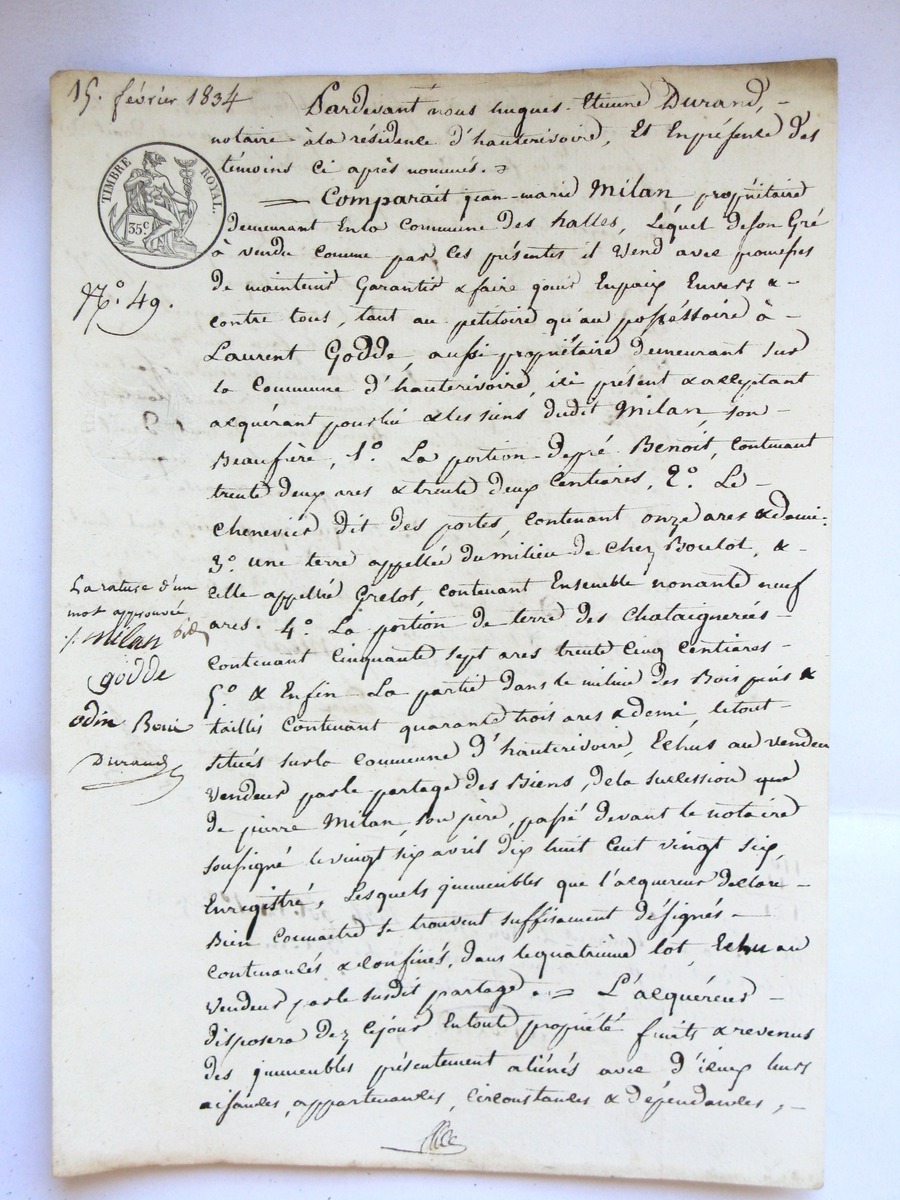 15. février 1834
TIMBRE ROYAL.
35c.
N.º 49.
Pardevant nous hugues-Etienne Durand,
notaire à la résidence d'hauterivoire, Et En présence des
témoins ci après nommés.
= Comparait jean-marie Milan, propriétaire
demeurant En la Commune des halles, Lequel de son Gré
à vendu comme par ces présentes il Vend avec promesses
de maintenir Garantir & faire jouir En paix Envers &
contre tous, tant au pétitoire qu'au posséssoire à
Laurent Godde, aussi propriétaire demeurant sur
la Commune d'hauterivoire, ici présent & acceptant
acquérant pour lui & les siens dudit Milan, son
Beaufrère, 1º. La portion de pré Benoit, contenant
trente deux ares & trente deux Centiares, 2º. Le
Chenevier dit des portes, contenant onze ares & demi.
3º. une terre appellée du milieu de chez Boulot, &
celle appellée Grelot, contenant Ensemble nonante neuf
ares. 4º. La portion de terre des Chataignerées
contenant Cinquante sept ares trente Cinq Centiares
5º. & Enfin La partie dans le milieu des Bois pins &
taillis contenant quarante trois ares & demi, le tout
situés sur la commune d'hauterivoire, Echus au vendeur
vendeur par le partage des Biens, de la succession
de pierre Milan, son père, passé devant le notaire
soussigné le vingt six avril dix huit cent vingt six,
Enregistré, Lesquels jmmeubles que l'acquereur déclare
Bien connaitre se trouvent suffisament désignés
continancés & confinés, dans le quatrième lot, Echu au
vendeur par le susdit partage. = L'acquéreur
disposera dez ce jour En toute propriété fruits & revenus
des jmmeubles présentement aliénés avec d'iceux leurs
aisances, appartenances, circonstances & dépendances,
La rature d'un
mot approuvée
milan
godde
odin
Durand